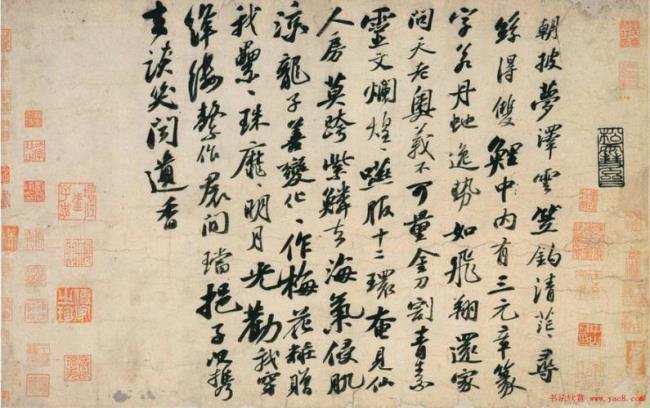 朝披夢澤雲笠釣清茫〻尋
絲得雙鯉中内有三元章篆
字若丹虵逸勢如飛翔還家
問天老奧義不可量金刀割青素
靈文爛煌〻嚥服十二環奄見仙
人房莫跨紫鱗去海氣侵肌
涼龍子善變化〻作梅花粧贈
我纍〻珠靡〻明月光勸我穿
絳縷繫作裙間璫挹子以攜
去談笑聞遺香
松雪齋
书法欣赏 www.yac8.com